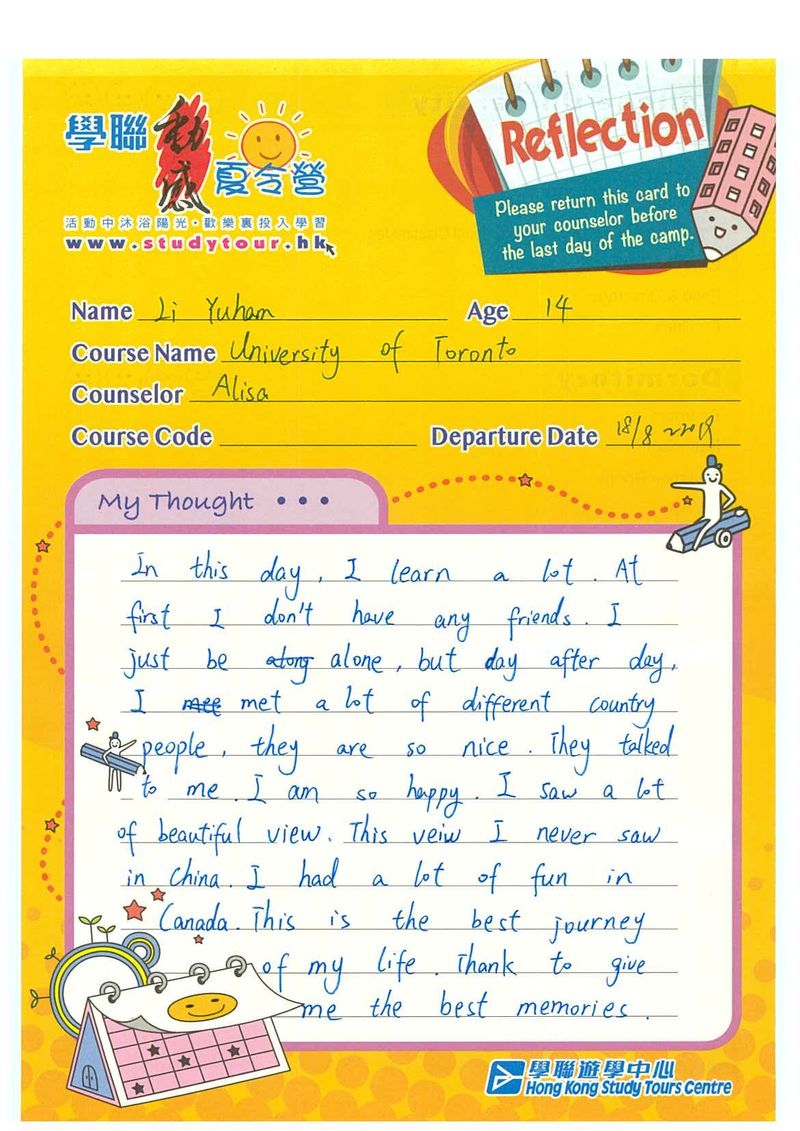 學聯 動感 夏令營
活動中沐浴陽光・歡樂裏投入學習
www.studytour.hk
Reflection
Please return this card to
your counselor before
the last day of the camp.
Name Li Yuhan Age 14
Course Name University of Toronto
Counselor Alisa
Course Code Departure Date 18/8
My Thought • • •
In this day, I learn a lot. At
first I don't have any friends. I
just be along alone, but day after day,
I met a lot of different country
people, they are so nice. They talked
to me. I am so happy. I saw a lot
of beautiful view. This veiw I never saw
in China. I had a lot of fun in
Canada. This is the best journey
of my life. Thank to give
me the best memories.
學聯遊學中心
Hong Kong Study Tours Centre